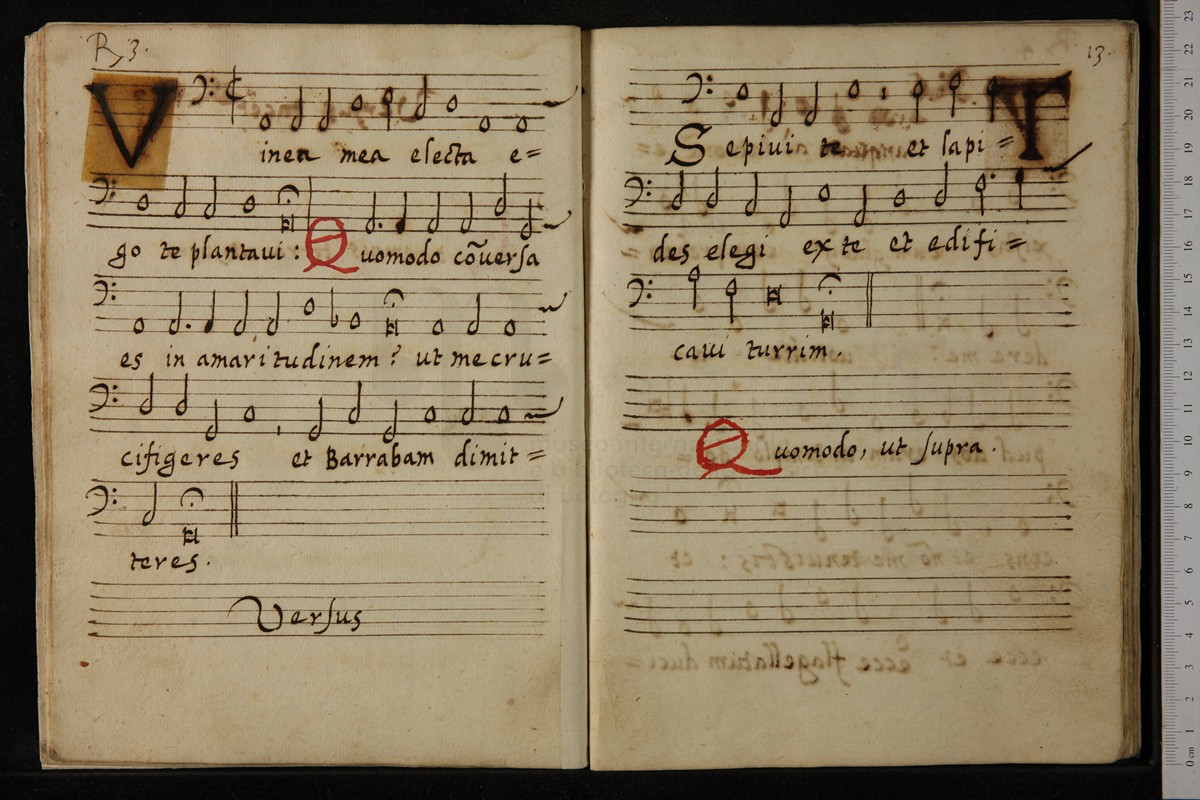 R 3.
Vinea mea electa e=
go te plantavi : Quomodo cōversa
es in amaritudinem ? ut me cru=
cifigeres et Barrabam dimit=
teres.
Versus
13.
Sepivi te et lapi=
des elegi ex te et edifi=
cavi turrim.
Quomodo, ut supra.